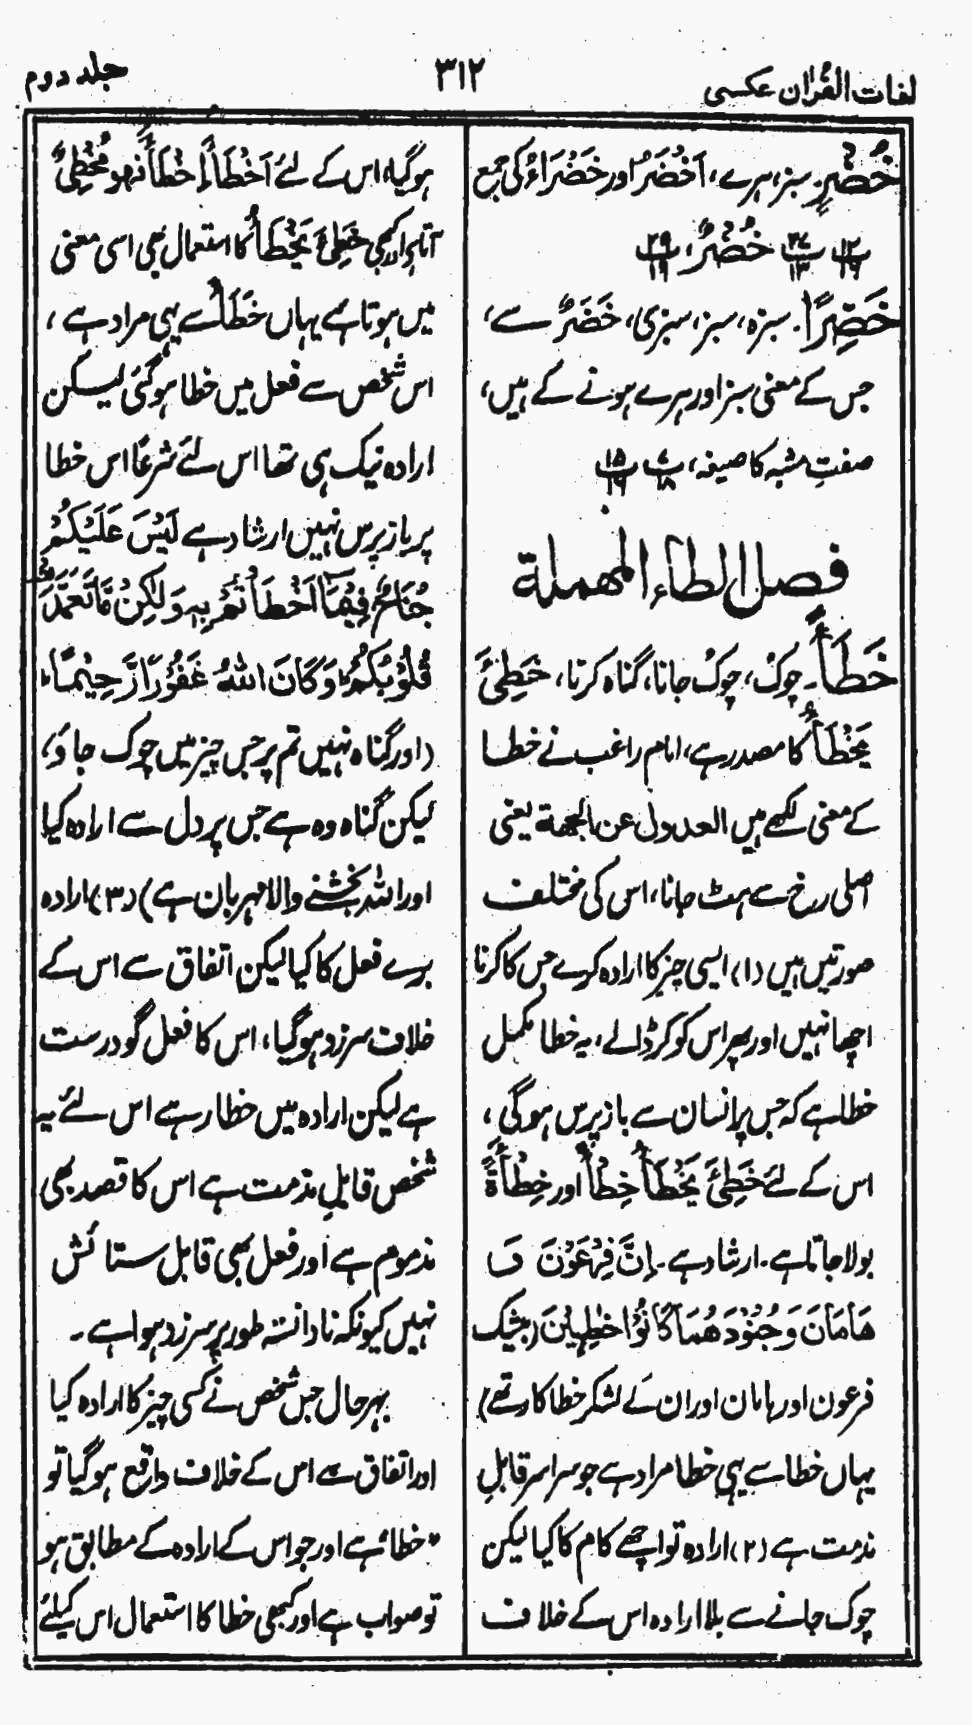 لغات القرآن عکسی
۳۱۲
جلد دوم
خُضْرٍ۔ سبز، ہرے، اَخْضَرُ اور خَضْرَاءُ کی جمع
پ۱۲/۱۶ پ۲۷/۱۳ خُضْرٌ، پ۲۹/۱۹
خَضِرًا۔ سبزہ، سبز، سبزی، خَضَرٌ سے،
جس کے معنی سبز اور ہرے ہونے کے ہیں،
صفتِ مشبہ کا صیغہ، پ۷/۱۸ پ۱۵/۱۶
فصل الطاء المهملة
خَطَأً۔ چوک، چوک جانا، گناہ کرنا، خَطِئَ
یَخْطَأُ کا مصدر ہے، امام راغب نے خطا
کے معنی لکھے ہیں العدول عن الجهة یعنی
اصلی رخ سے ہٹ جانا، اس کی مختلف
صورتیں ہیں (۱) ایسی چیز کا ارادہ کرے جس کا کرنا
اچھا نہیں اور پھر اس کو کر ڈالے، یہ خطا مکمل
خطا ہے کہ جس پر انسان سے باز پرس ہوگی،
اس کے لئے خَطِئَ یَخْطَأُ خِطْأً اور خِطْأَةً
بولا جاتا ہے۔ ارشاد ہے۔ اِنَّ فِرْعَوْنَ وَ
هَامَانَ وَجُنُوْدَهُمَا كَانُوْا خٰطِـِٕیْنَ (بیشک
فرعون اور ہامان اور ان کے لشکر خطاکار تھے)
یہاں خطا سے یہی خطا مراد ہے جو سراسر قابلِ
مذمت ہے (۲) ارادہ تو اچھے کام کا کیا لیکن
چوک جانے سے بلا ارادہ اس کے خلاف
ہوگیا، اس کے لئے اَخْطَأَ اِخْطَأً فهو مُخْطِئٌ
آتا ہے اور کبھی خَطِئَ یَخْطَأُ کا استعمال بھی اسی معنی
میں ہوتا ہے یہاں خَطَأً سے یہی مراد ہے،
اس شخص سے فعل میں خطا ہوگئی لیکن
ارادہ نیک ہی تھا اس لئے شرعًا اس خطا
پر باز پرس نہیں ارشاد ہے لَيْسَ عَلَيْكُمْ
جُنَاحٌ فِيْمَا اَخْطَأْتُمْ بِهٖ وَلٰكِنْ مَّا تَعَمَّدَتْ
قُلُوْبُكُمْ وَكَانَ اللهُ غَفُوْرًا رَّحِيْمًا،
(اور گناہ نہیں تم پر جس چیز میں چوک جاؤ،
لیکن گناہ وہ ہے جس پر دل سے ارادہ کیا
اور اللہ بخشنے والا مہربان ہے) (۳) ارادہ
برے فعل کا کیا لیکن اتفاق سے اس کے
خلاف سرزد ہوگیا، اس کا فعل گو درست
ہے لیکن ارادہ میں خطا رہے اس لئے یہ
شخص قابلِ مذمت ہے اس کا قصد بھی
مذموم ہے اور فعل بھی قابل ستائش
نہیں کیونکہ نادانستہ طور پر سرزد ہوا ہے۔
بہر حال جس شخص نے کسی چیز کا ارادہ کیا
اور اتفاق سے اس کے خلاف واقع ہوگیا تو
"خطا" ہے اور جو اس کے ارادہ کے مطابق ہو
تو صواب ہے اور کبھی خطا کا استعمال اس کیلئے